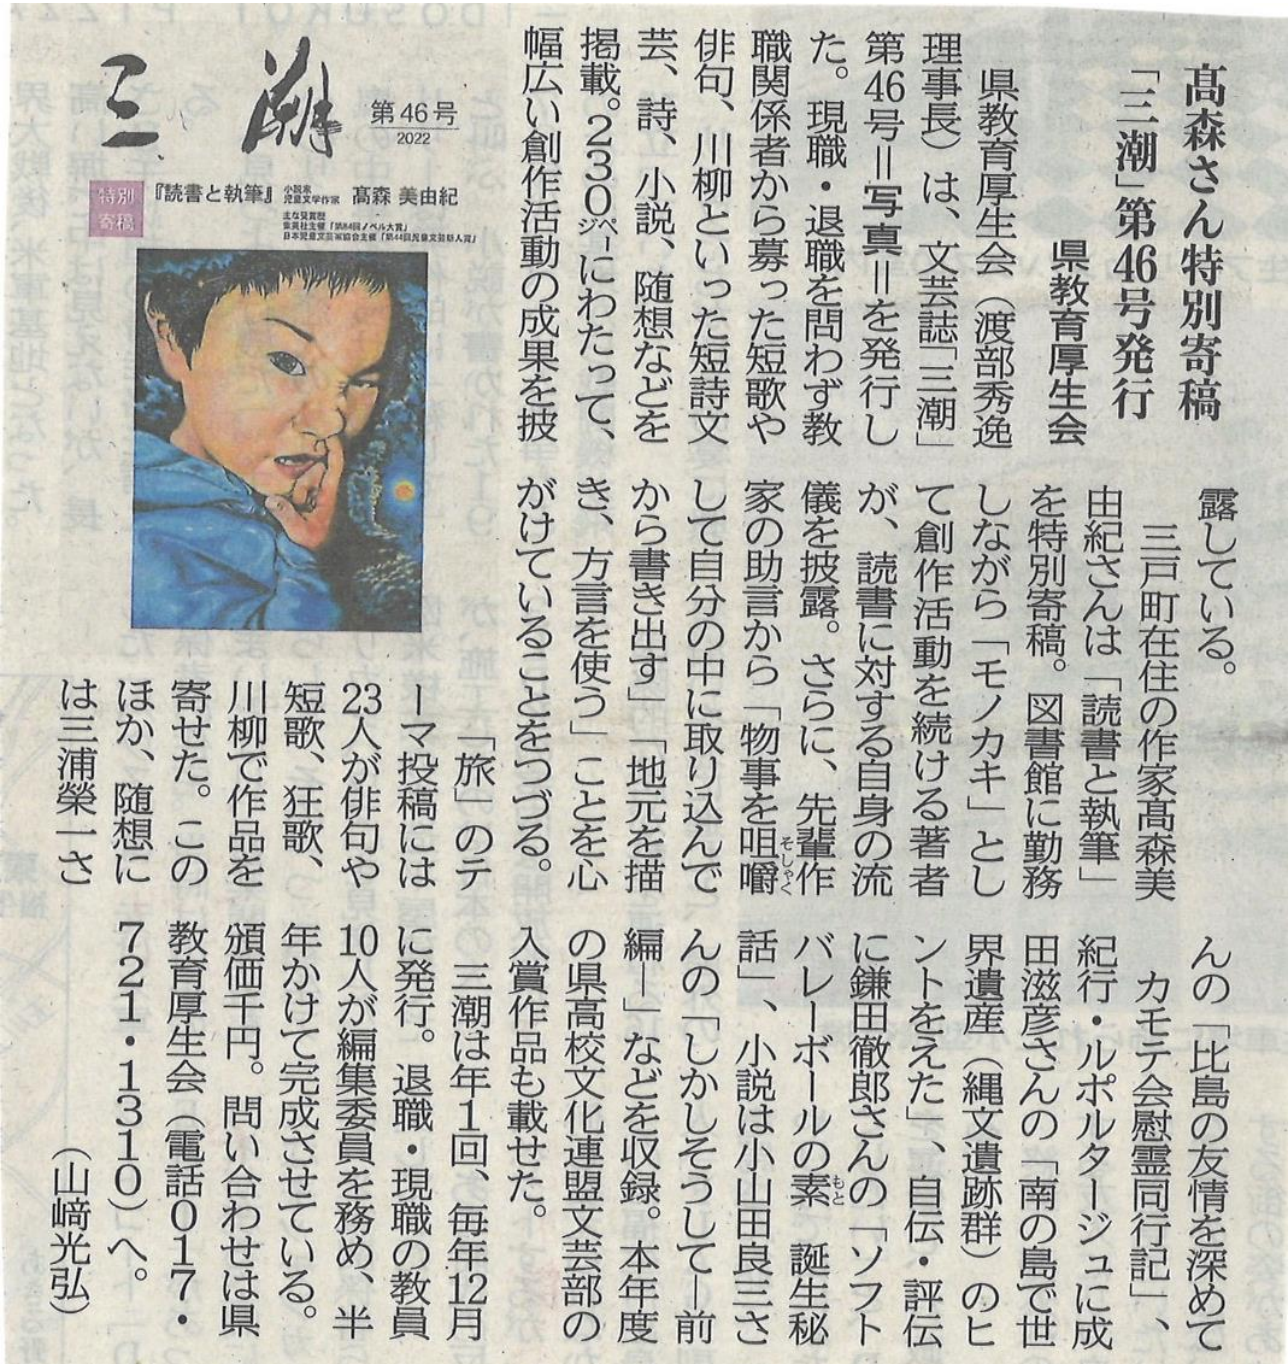 髙森さん特別寄稿
「三潮」第46号発行
県教育厚生会
県教育厚生会（渡部秀逸
理事長）は、文芸誌「三潮」
第46号＝写真＝を発行し
た。現職・退職を問わず教
職関係者から募った短歌や
俳句、川柳といった短詩文
芸、詩、小説、随想などを
掲載。230㌻にわたって、
幅広い創作活動の成果を披
露している。
三戸町在住の作家髙森美
由紀さんは「読書と執筆」
を特別寄稿。図書館に勤務
しながら「モノカキ」とし
て創作活動を続ける著者
が、読書に対する自身の流
儀を披露。さらに、先輩作
家の助言から「物事を咀嚼そしゃく
して自分の中に取り込んで
から書き出す」「地元を描
き、方言を使う」ことを心
がけていることをつづる。
「旅」のテ
ーマ投稿には
23人が俳句や
短歌、狂歌、
川柳で作品を
寄せた。この
ほか、随想に
は三浦榮一さ
んの「比島の友情を深めて
カモテ会慰霊同行記」、
紀行・ルポルタージュに成
田滋彦さんの「南の島で世
界遺産（縄文遺跡群）のヒ
ントをえた」、自伝・評伝
に鎌田徹郎さんの「ソフト
バレーボールの素もと 誕生秘
話」、小説は小山田良三さ
んの「しかしそうして―前
編―」などを収録。本年度
の県高校文化連盟文芸部の
入賞作品も載せた。
三潮は年1回、毎年12月
に発行。退職・現職の教員
10人が編集委員を務め、半
年かけて完成させている。
頒価千円。問い合わせは県
教育厚生会（電話017・
721・1310）へ。
（山﨑光弘）
三潮
第46号
2022
特別
寄稿
『読書と執筆』
小説家
児童文学作家
髙森 美由紀
主な受賞歴
集英社主催「第84回ノベル大賞」
日本児童文芸家協会主催「第44回児童文芸新人賞」